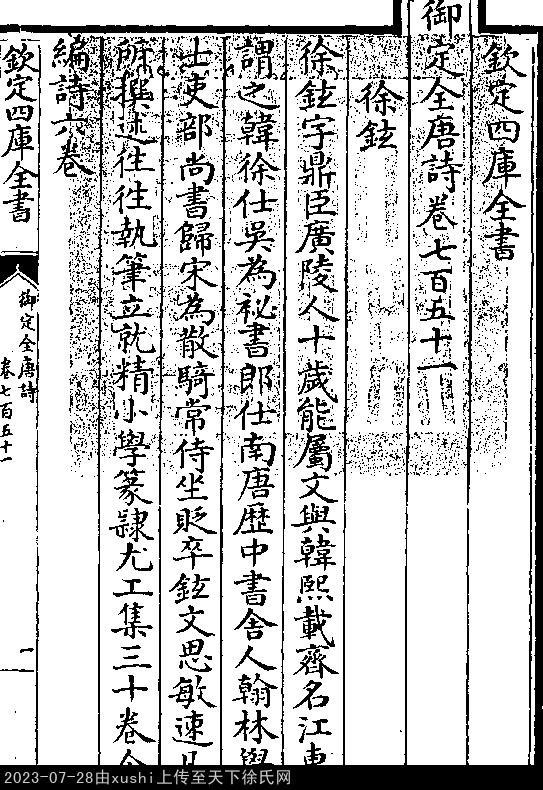 欽定四庫全書
御定全唐詩卷七百五十一
徐鉉
徐鉉字鼎臣廣陵人十歲能屬文與韓熙載齊名江東
謂之韓徐仕吳為祕書郎仕南唐歷中書舍人翰林學
士吏部尚書歸宋為散騎常侍坐貶卒鉉文思敏速凡
所撰述往往執筆立就精小學篆隸尤工集三十卷今
編詩六卷
欽定四庫全書
御定全唐詩
卷七百五十一
一
2023-07-28由xushi上传至天下徐氏网